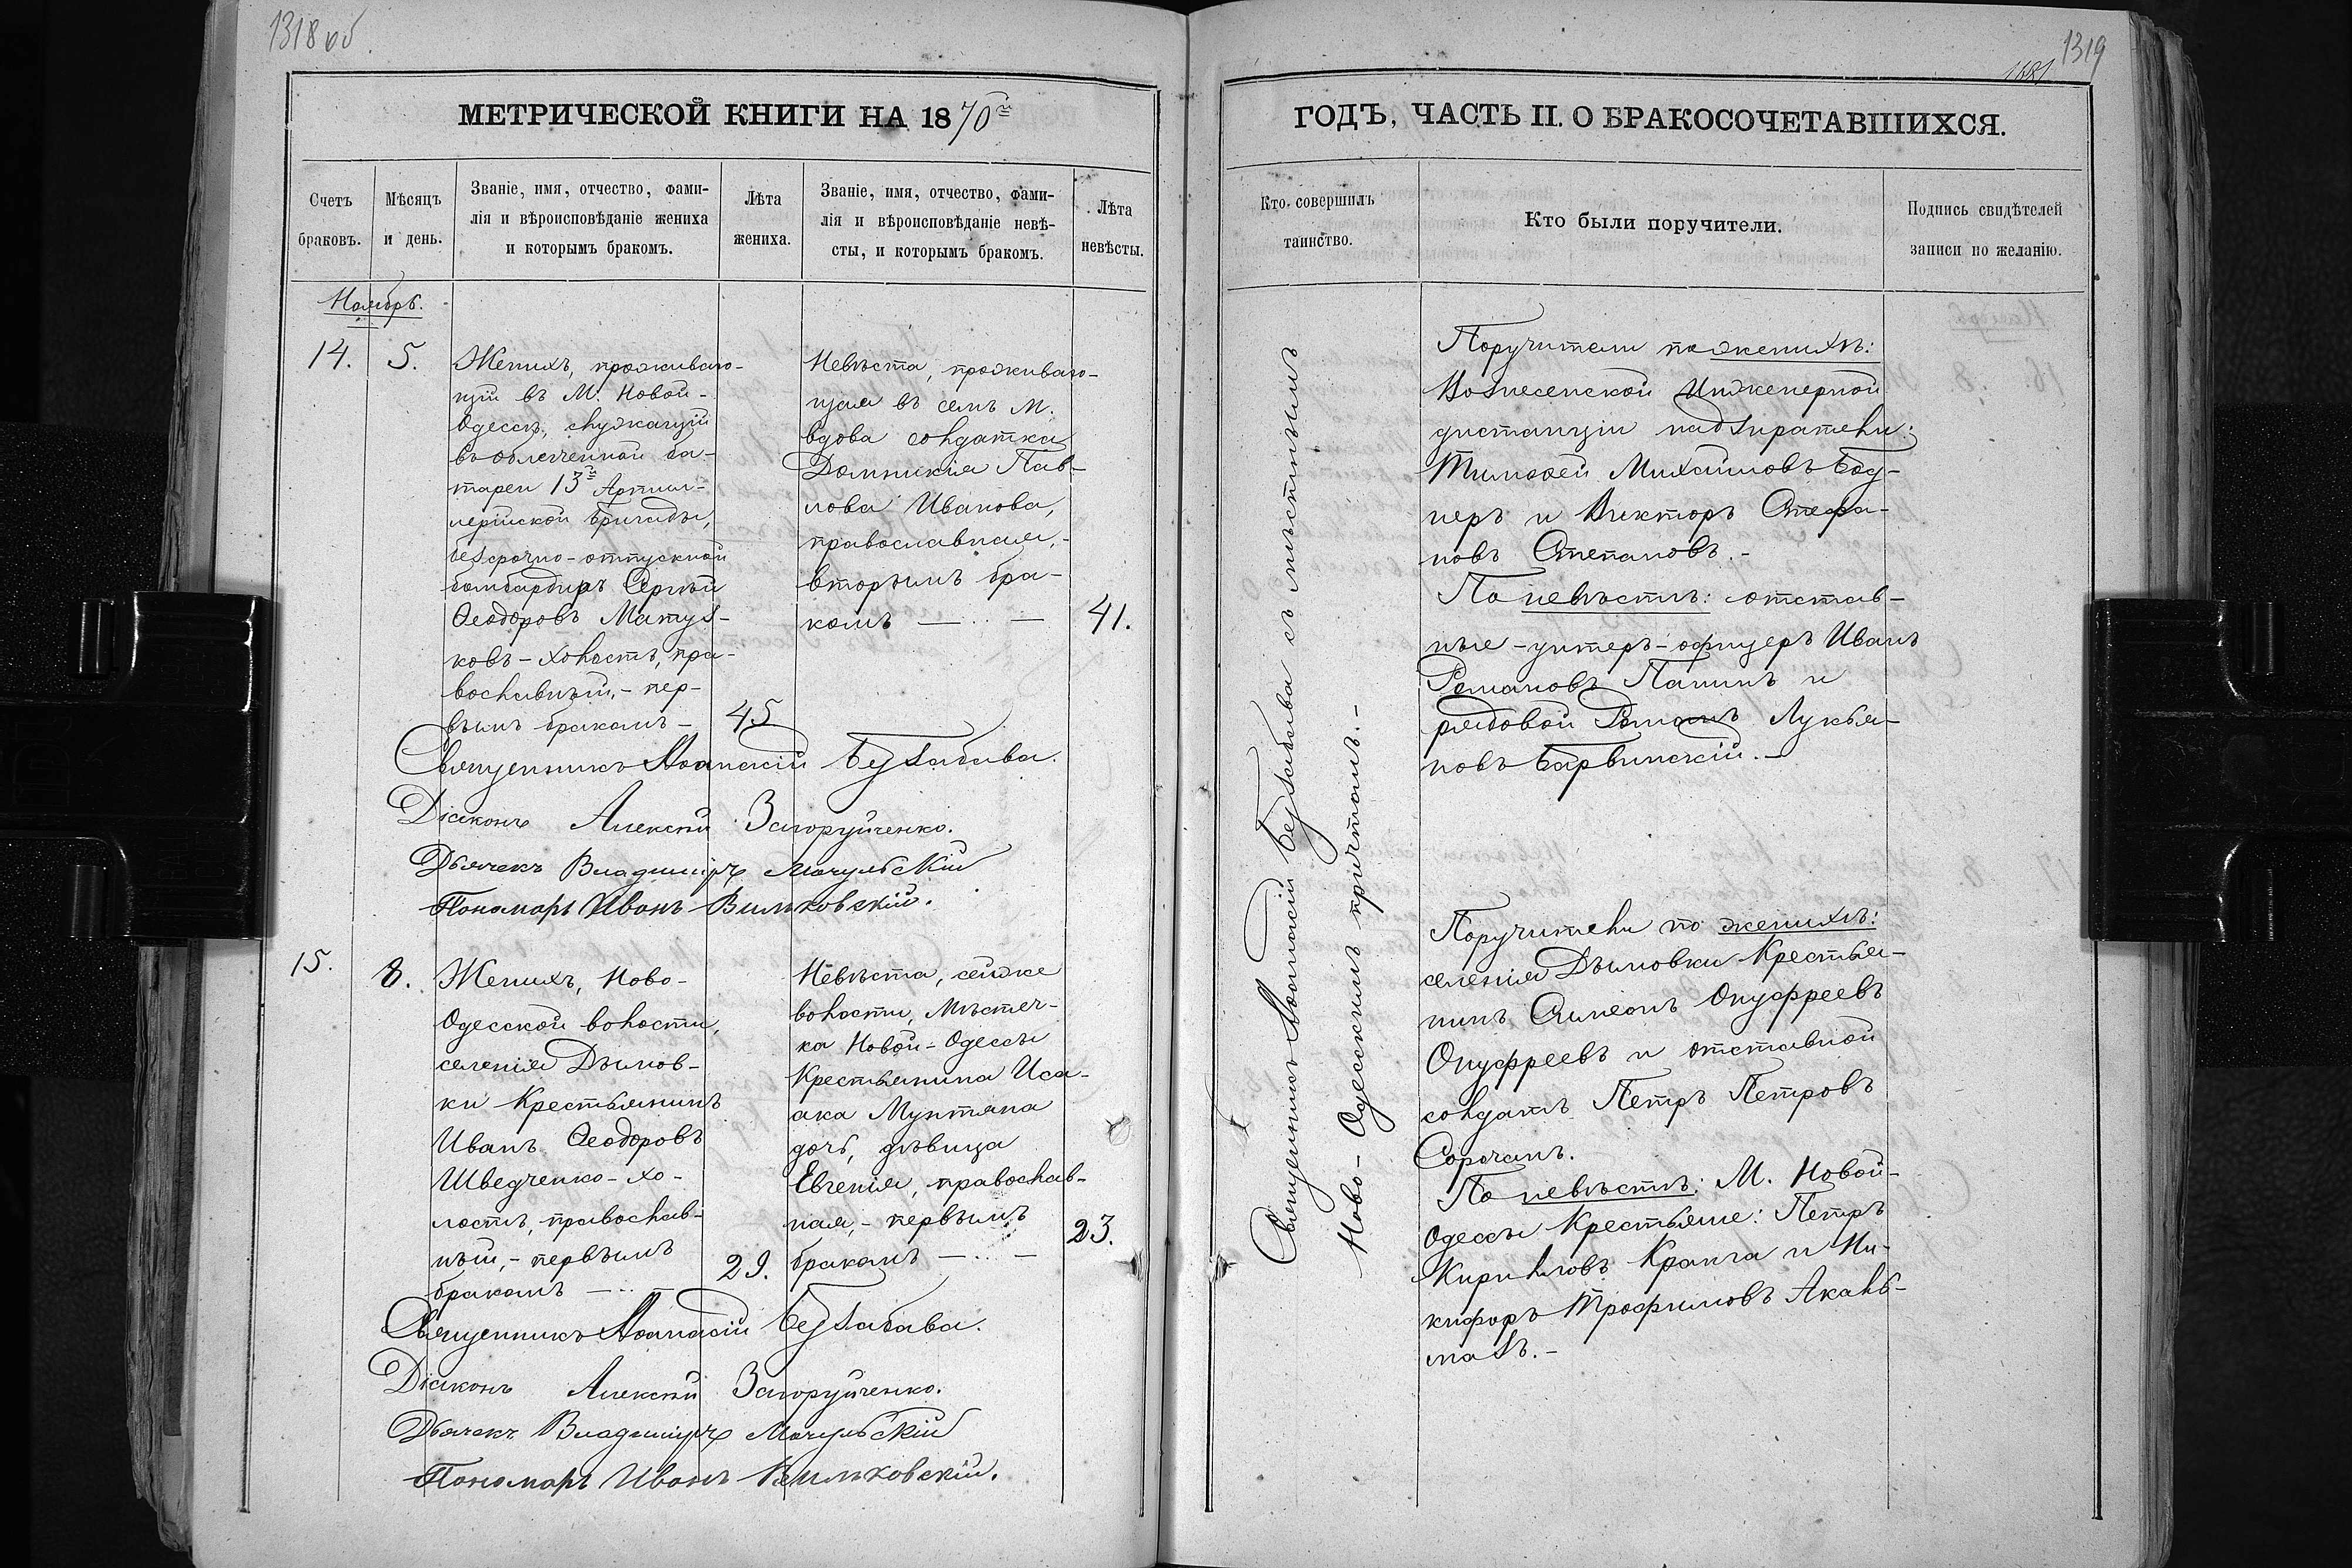 1318 об.
МЕТРИЧЕСКОЙ КНИГИ НА 1870й
Счетъ браковъ.
Мѣсяцъ и день.
Званіе, имя, отчество, фами-
лія и вѣроисповѣданіе жениха
и которымъ бракомъ.
Лѣта
жениха.
Званіе, имя, отчество, фами-
лія и вѣроисповѣданіе невѣ-
сты, и которымъ бракомъ.
Лѣта
невѣсты.
Ноябрь.
14.
5.
Женихъ, проживаю-
щій въ М. Новой-
Одессѣ, служащій
въ облегченной ба-
тареи 13й Артил-
лерійской бригады,
безсрочно-отпускной
бомбардиръ Сергѣй
Ѳеодоровъ Матуз-
ковъ - холостъ, пра-
вославный, - пер-
вымъ бракомъ -
45
Невѣста, проживаю-
щая въ семъ М.
вдова солдатка
Домникія Пав-
лова Иванова,
православная, -
вторымъ бра-
комъ
41.
Священникъ Аѳанасій Бузабава.
Діаконъ Алексѣй Загоруйченко.
Дьячекъ Владиміръ Мачульскій
Пономарь Иванъ Вильковскій.
15.
8.
Женихъ, Ново-
Одесской волости,
селенія Дымов-
ки Крестьянинъ
Иванъ Ѳеодоровъ
Шведченко - хо-
лостъ, православ-
ный, - первымъ
бракомъ
29.
Невѣста, сейже
волости, Мѣстеч-
ка Новой-Одессы
Крестьянина Иса-
ака Мунтяна
дочь, дѣвица
Евгенія, православ-
ная, - первымъ
бракомъ
23.
Священникъ Аѳанасій Бузабава.
Діаконъ Алексѣй Загоруйченко.
Дьячекъ Владиміръ Мачульскій
Пономарь Иванъ Вильковскій.
1319
ГОДЪ, ЧАСТЬ II. О БРАКОСОЧЕТАВШИХСЯ.
Кто совершилъ
таинство.
Кто были поручители.
Подпись свидѣтелей
записи по желанію.
Священникъ Аѳанасій Бузабава съ мѣстнымъ
Ново-Одесскимъ причтомъ. -
Поручители по женихѣ:
Вознесенской Инженерной
дистанціи надзиратели:
Тимоѳей Михайловъ Бод-
неръ и Викторъ Стефа-
новъ Степановъ. -
По невѣстѣ: отстав-
ные - унтеръ-офицеръ Иванъ
Романовъ Папинъ и
рядовой Романъ Лукья-
новъ Барвинскій. -
Поручители по женихѣ:
селенія Дымовки Крестья-
нинъ Симеонъ Онуфреевъ
Онуфреевъ и отставной
солдатъ Петръ Петровъ
Сорочанъ.
По невѣстѣ: М. Новой-
Одессы Крестьяне: Петръ
Кирилловъ Кранга и Ни-
кифоръ Трофимовъ Акаль-
мазъ. -